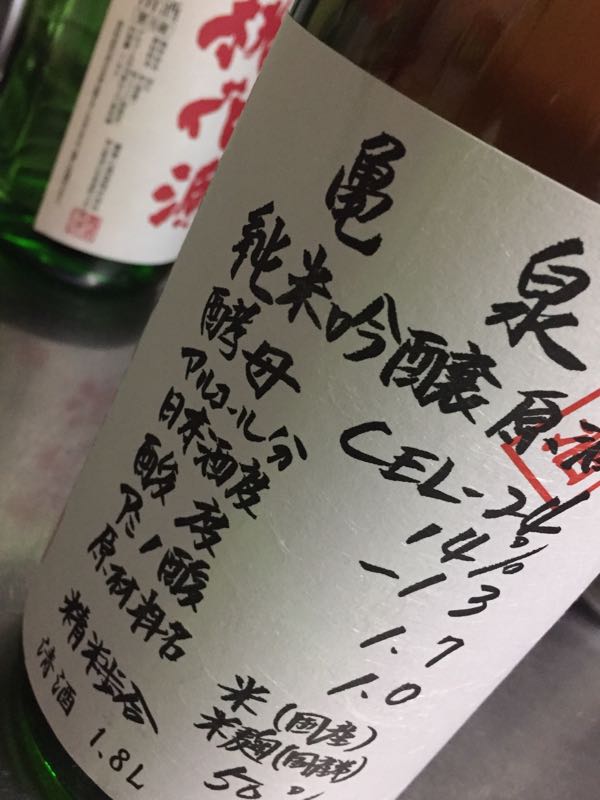 亀泉
純米吟醸原酒
酵母 CEL-24
アルコール分 14%
日本酒度 -13
酸度 1.7
アミノ酸 1.0
原材料名 米(国産)
米麹(国産米)
精米歩合 50%
清酒 1.8L
桃花源